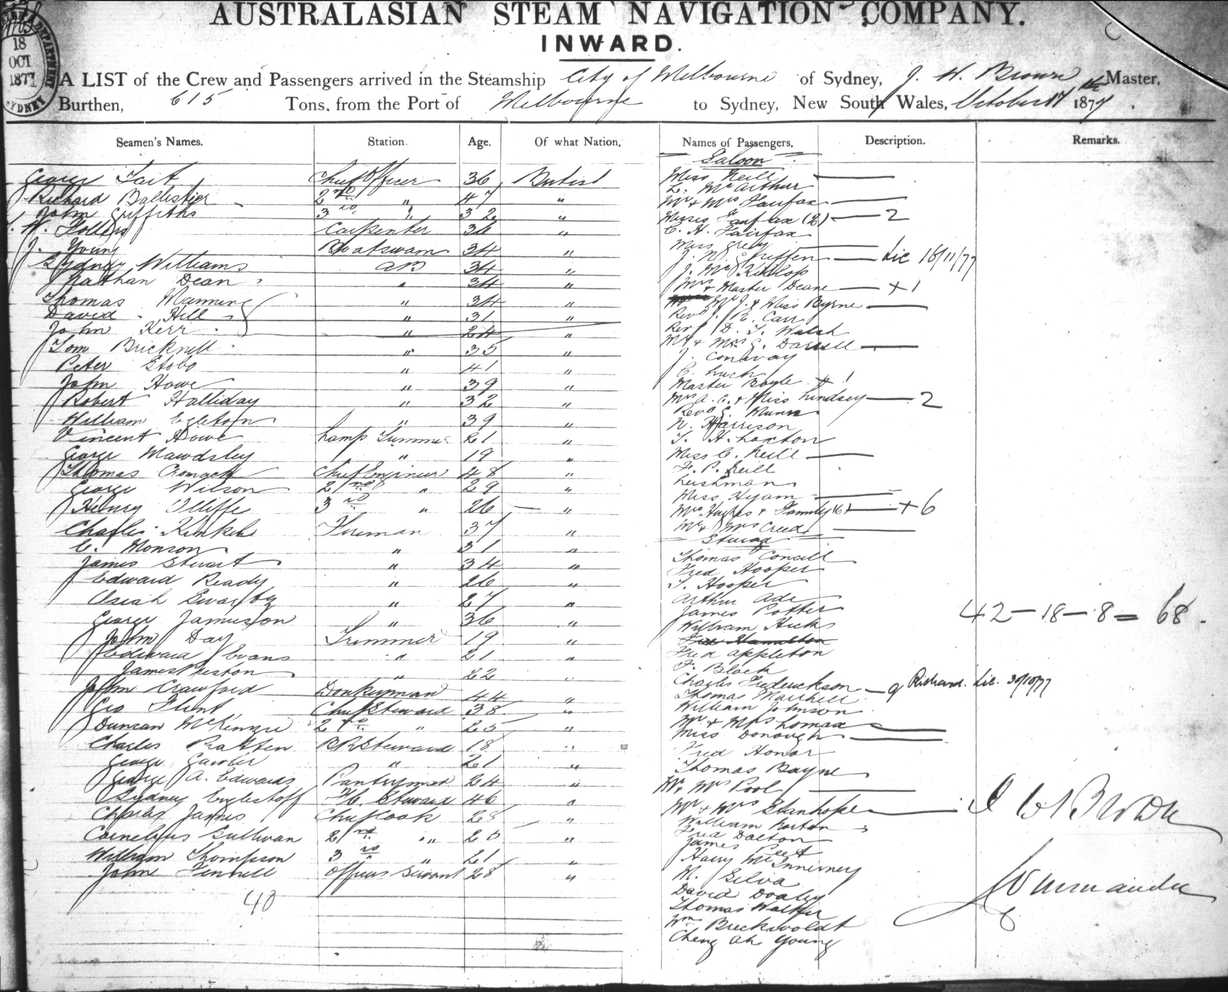 AUSTRALASIAN STEAM NAVIGATION COMPANY.
INWARD.
18
OCT
1877
SYDNEY
A LIST of the Crew and Passengers arrived in the Steamship City of Melbourne of Sydney, J. H. Brown Master,
Burthen, 615 Tons, from the Port of Melbourne to Sydney, New South Wales, October 17th 1877.
Seamen's Names. Station. Age. Of what Nation,
George Tait Chief Officer 36 British
Richard Ballestier 2nd " 47 "
John Griffiths 3rd " 32 "
Carpenter 36 "
J. Young Boatswain 34 "
Williams AB 34 "
Nathan Dean " 34 "
Thomas Manning " 34 "
David Hill " 31 "
John Kerr " 24 "
Tom Bricknell " 35 "
Peter Stobo " 41 "
John Howe " 39 "
Robert Halliday " 32 "
William Egleton " 39 "
Vincent Howe Lamp Trimmer 21 "
George Mawdsley " 19 "
Thomas Chief Engineer 48 "
George Wilson 2nd " 29 "
Henry Iliffe 3rd " 26 "
Charles Fireman 37 "
C. Monson " 31 "
James Stuart " 34 "
Edward Ready " 26 "
" 27 "
George Jamieson " 36 "
John Day Trimmer 19 "
Edward Evans " 21 "
James Weston " 22 "
John Crawford Donkeyman 44 "
Geo Flint Chief Steward 38 "
Duncan McKenzie 2nd " 25 "
Charles Batten BR Steward 18 "
George " 21 "
George A. Edwards Pantryman 24 "
Sydney Steward 46 "
Charles James Chief Cook 28 "
Cornelius Sullivan 2nd " 20 "
William Thompson 3rd " 21 "
John Officers Servant 28 "
40
Names of Passengers, Description. Remarks.
Saloon
Miss Neill
L. McArthur
Mr & Mrs Fairfax
Misses Fairfax (2) 2
C. H. Fairfax
Miss
J. N. Griffen Lic 16/11/77
J. McKillop
Mrs & Master Deane + 1
Mr Mrs J. & Miss Byrne
Revd. J. E. Carr
Revd D. J. Walsh
Mr & Mrs G. Darrell
J. Conway
C. Lush
Master Boyle + 1
Mrs A. C. & Miss Lindsey 2
Revd G. Munn
N. Harrison
T. H. Loxton
Miss C. Neill
F. P. Neill
Leishman
Miss Hyam
Mrs Hughes & Family (6) + 6
Mr & Mrs Creed
Steerage
Thomas
Fred Hooper
T. Hooper
Arthur Ade
James Potter
William Hicks
Fred Hamilton
Fred Appleton
F. Black
Charles Fredrickson 9 Richard. Lic. 30/10/77
Thomas
William Johnson
Mr & Mrs Lomax
Miss Donough
Fred Honor
Thomas Bayne
Mr Mrs Pool
Mr & Mrs Stanhope
William Norton
Fred Dalton
James
Harry McInnerney
M. Silva
David Dooley
Thomas Walker
Wm
Cheng Ah Young
42 - 18 - 8 = 68.
J H Brown
Commander